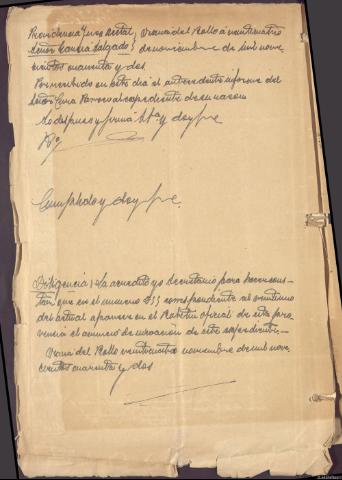 Providencia Juez Instal
Señor García Salgado
Viana del Bollo a veinticuatro
de noviembre de mil nove-
cientos cuarenta y dos
Por recibido en este día el antecedente informe del
Señor Cura Párroco al expediente de su razón
Lo dispuso y firma S.Sª. y doy fe
Cumplido y doy fe.
Diligencia: La acredito yo Secretario para hacer cons-
tar, que en el número 255 correspondiente al veintiuno
del actual aparece en el Boletín oficial de esta pro-
vincia el anuncio de incoación de este expediente.-
Viana del Bollo veinticuatro noviembre de mil nove-
cientos cuarenta y dos